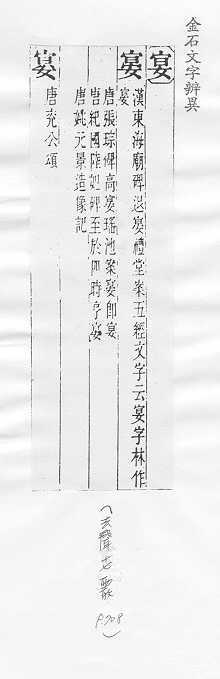 金石文字辨異
宴
宴 漢東海廟碑退宴禮堂案五經文字云宴字林作
宴
唐張琮碑高宴瑤池案宴即宴
唐紀國陸妃碑至於四時享宴
唐姚元景造像記
宴 唐兗公頌
P.708